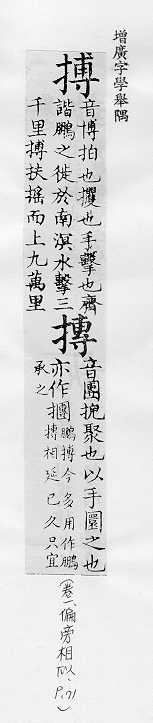 增廣字學舉隅
搏
音博拍也攫也手擊也齊
諧鵬之徙於南溟水擊三
千里搏扶搖而上九萬里
摶
音團捖聚也以手圜之也
亦作
鵬摶今多用作鵬
搏相延已久只宜
承之
(卷一、偏旁相似、P.71)